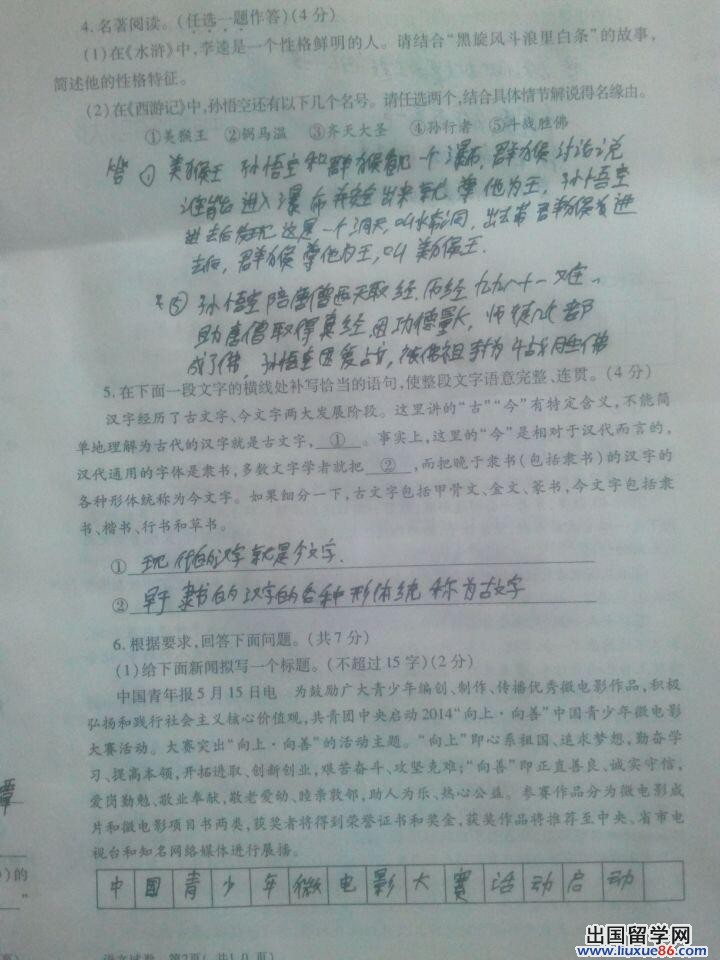 4.名著阅读。(任选一题作答)(4分)
(1)在《水浒》中,李逵是一个性格鲜明的人。请结合“黑旋风斗浪里白条”的故事,
简述他的性格特征。
(2)在《西游记》中,孙悟空还有以下几个名号。请任选两个,结合具体情节解说得名缘由。
①美猴王 ②弼马温 ③齐天大圣 ④孙行者 ⑤斗战胜佛
答 ① 美猴王 孙悟空和群猴 一个瀑布,群猴讨论说
谁能进入瀑布并安全出来就尊他为王,孙悟空
进去后发现这是一个洞天,叫水帘洞,出去带群猴 进
去后,群猴尊他为王,叫美猴王.
⑤ 孙悟空陪唐僧西天取经.历经九九八十一难、
助唐僧取得真经.因功德量大,师徒 都
成了佛,孙悟空因爱战,被佛祖 为斗战胜佛
5.在下面一段文字的横线处补写恰当的语句,使整段文字语意完整、连贯。(4分)
汉字经历了古文字、今文字两大发展阶段。这里讲的“古”“今”有特定含义,不能简
单地理解为古代的汉字就是古文字,①。事实上,这里的“今”是相对于汉代而言的,
汉代通用的字体是隶书,多数文字学者就把②,而把晚于隶书(包括隶书)的汉字的
各种形体统称为今文字。如果细分一下,古文字包括甲骨文、金文、篆书,今文字包括隶
书、楷书、行书和草书。
① 现代的汉字就是今文字.
② 早于隶书的汉字的各种形体统称为古文字
6.根据要求,回答下面问题。(共7分)
(1)给下面新闻拟写一个标题。(不超过15字)(2分)
中国青年报5月15日电 为鼓励广大青少年编创、制作、传播优秀微电影作品,积极
弘扬和践行社会主义核心价值观,共青团中央启动2014“向上·向善”中国青少年微电影
大赛活动。大赛突出“向上·向善”的活动主题。“向上”即心系祖国、追求梦想,勤奋学
习、提高本领,开拓进取、创新创业,艰苦奋斗、攻坚克难;“向善”即正直善良、诚实守信,
爱岗勤勉、敬业奉献,敬老爱幼、睦亲敦邻,助人为乐、热心公益。参赛作品分为微电影成
片和微电影项目书两类,获奖者将得到荣誉证书和奖金,获奖作品将推荐至中央、省市电
视台和知名网络媒体进行展播。
中国青少年微电影大赛活动启动
)的
”
语文试卷 第2页(共10页)
出国留学网
www.liuxue86.com